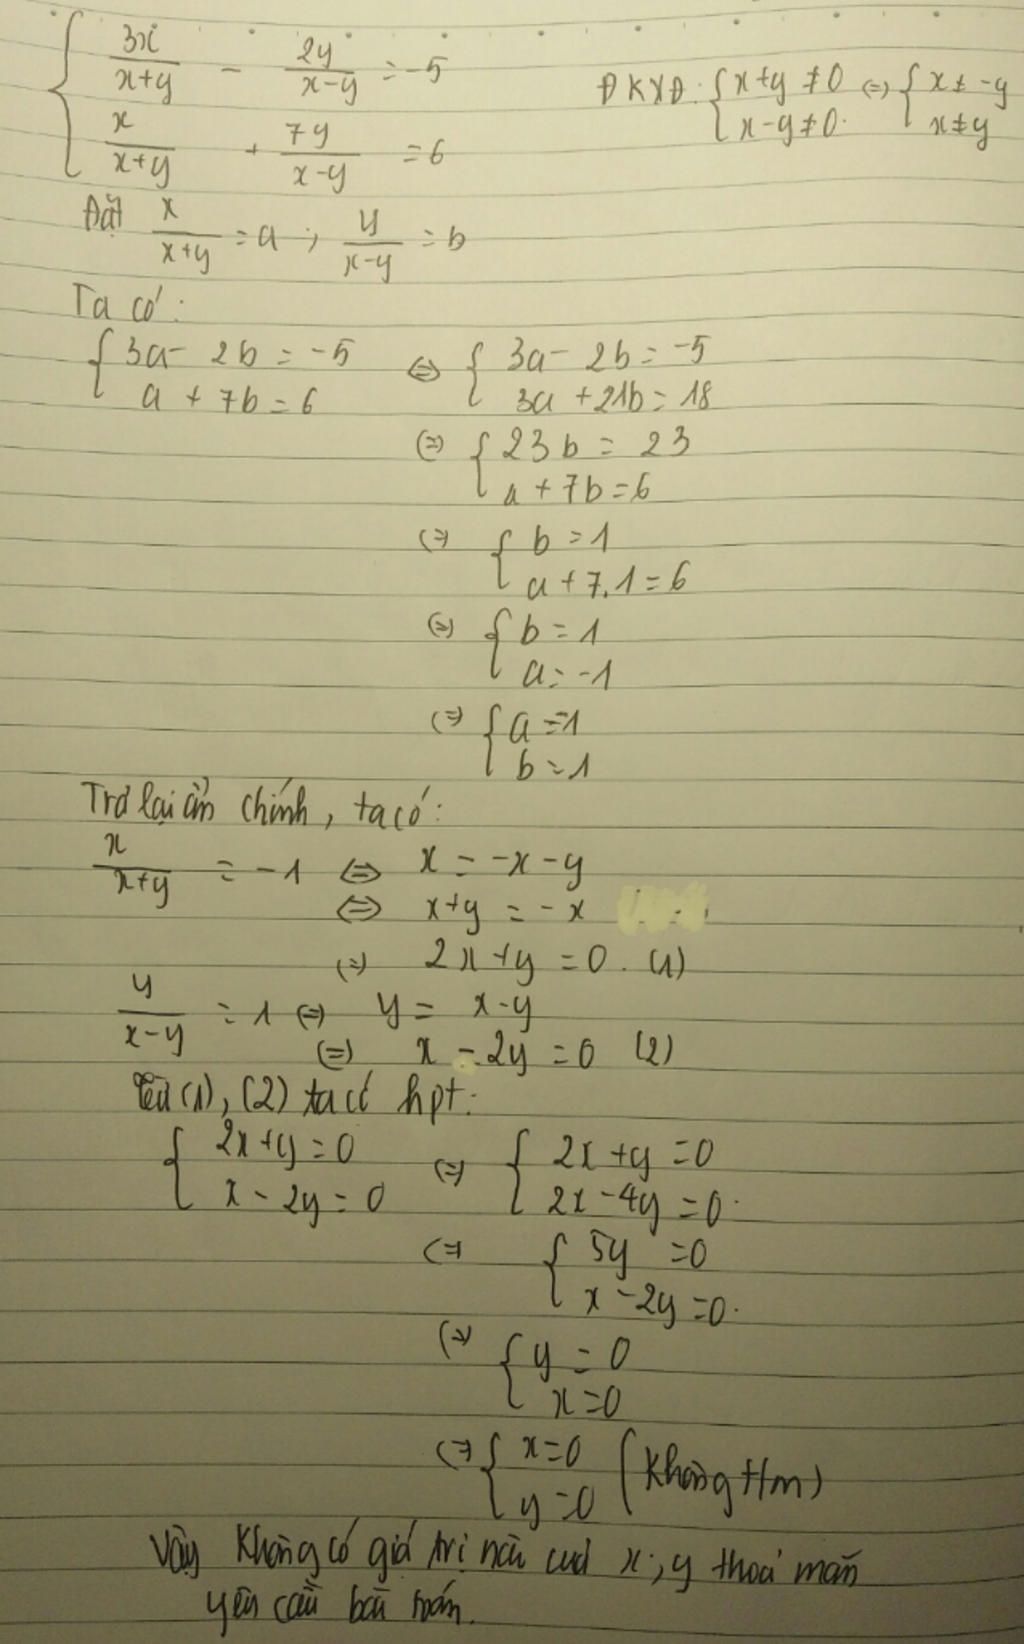 { 3x/(x+y) - 2y/(x-y) = -5
ĐKXĐ: { x+y ≠ 0 (=) { x ≠ -y
x-y ≠ 0. x ≠ y
x/(x+y) + 7y/(x-y) = 6
Đặt x/(x+y) = a ; y/(x-y) = b
Ta có:
{ 3a - 2b = -5 <=> { 3a - 2b = -5
a + 7b = 6 3a + 21b = 18
(=) { 23b = 23
a + 7b = 6
(=) { b = 1
a + 7.1 = 6
(=) { b = 1
a = -1
(=) { a = -1
b = 1
Trở lại ẩn chính, ta có:
x/(x+y) = -1 <=> x = -x - y
<=> x+y = -x
(=) 2x + y = 0. (1)
y/(x-y) = 1 (=) y = x-y
(=) x - 2y = 0 (2)
Từ (1), (2) ta có hpt:
{ 2x+y = 0 (=) { 2x+y = 0
x - 2y = 0 2x - 4y = 0.
(=) { 5y = 0
x - 2y = 0.
(=) { y = 0
x = 0
(=) { x = 0 (Không t/m)
y = 0
Vậy không có giá trị nào của x; y thoả mãn
yêu cầu bài toán.